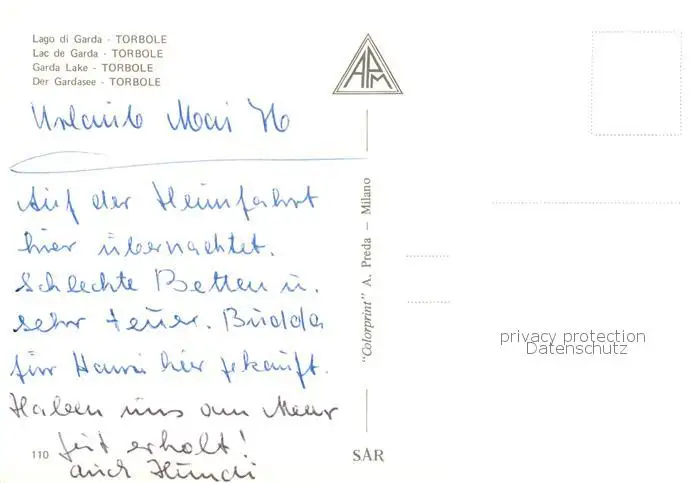 Lago di Garda - TORBOLE
Lac de Garda - TORBOLE
Garda Lake - TORBOLE
Der Gardasee - TORBOLE
APM
Urlaub Mai 76
Auf der Heimfahrt
hier übernachtet.
Schlechte Betten u.
sehr teuer. Budda
für Hansi hier gekauft.
Haben uns am Meer
gut erholt!
auch Hundi
110
"Colorprint" A. Preda — Milano
SAR
privacy protection
Datenschutz